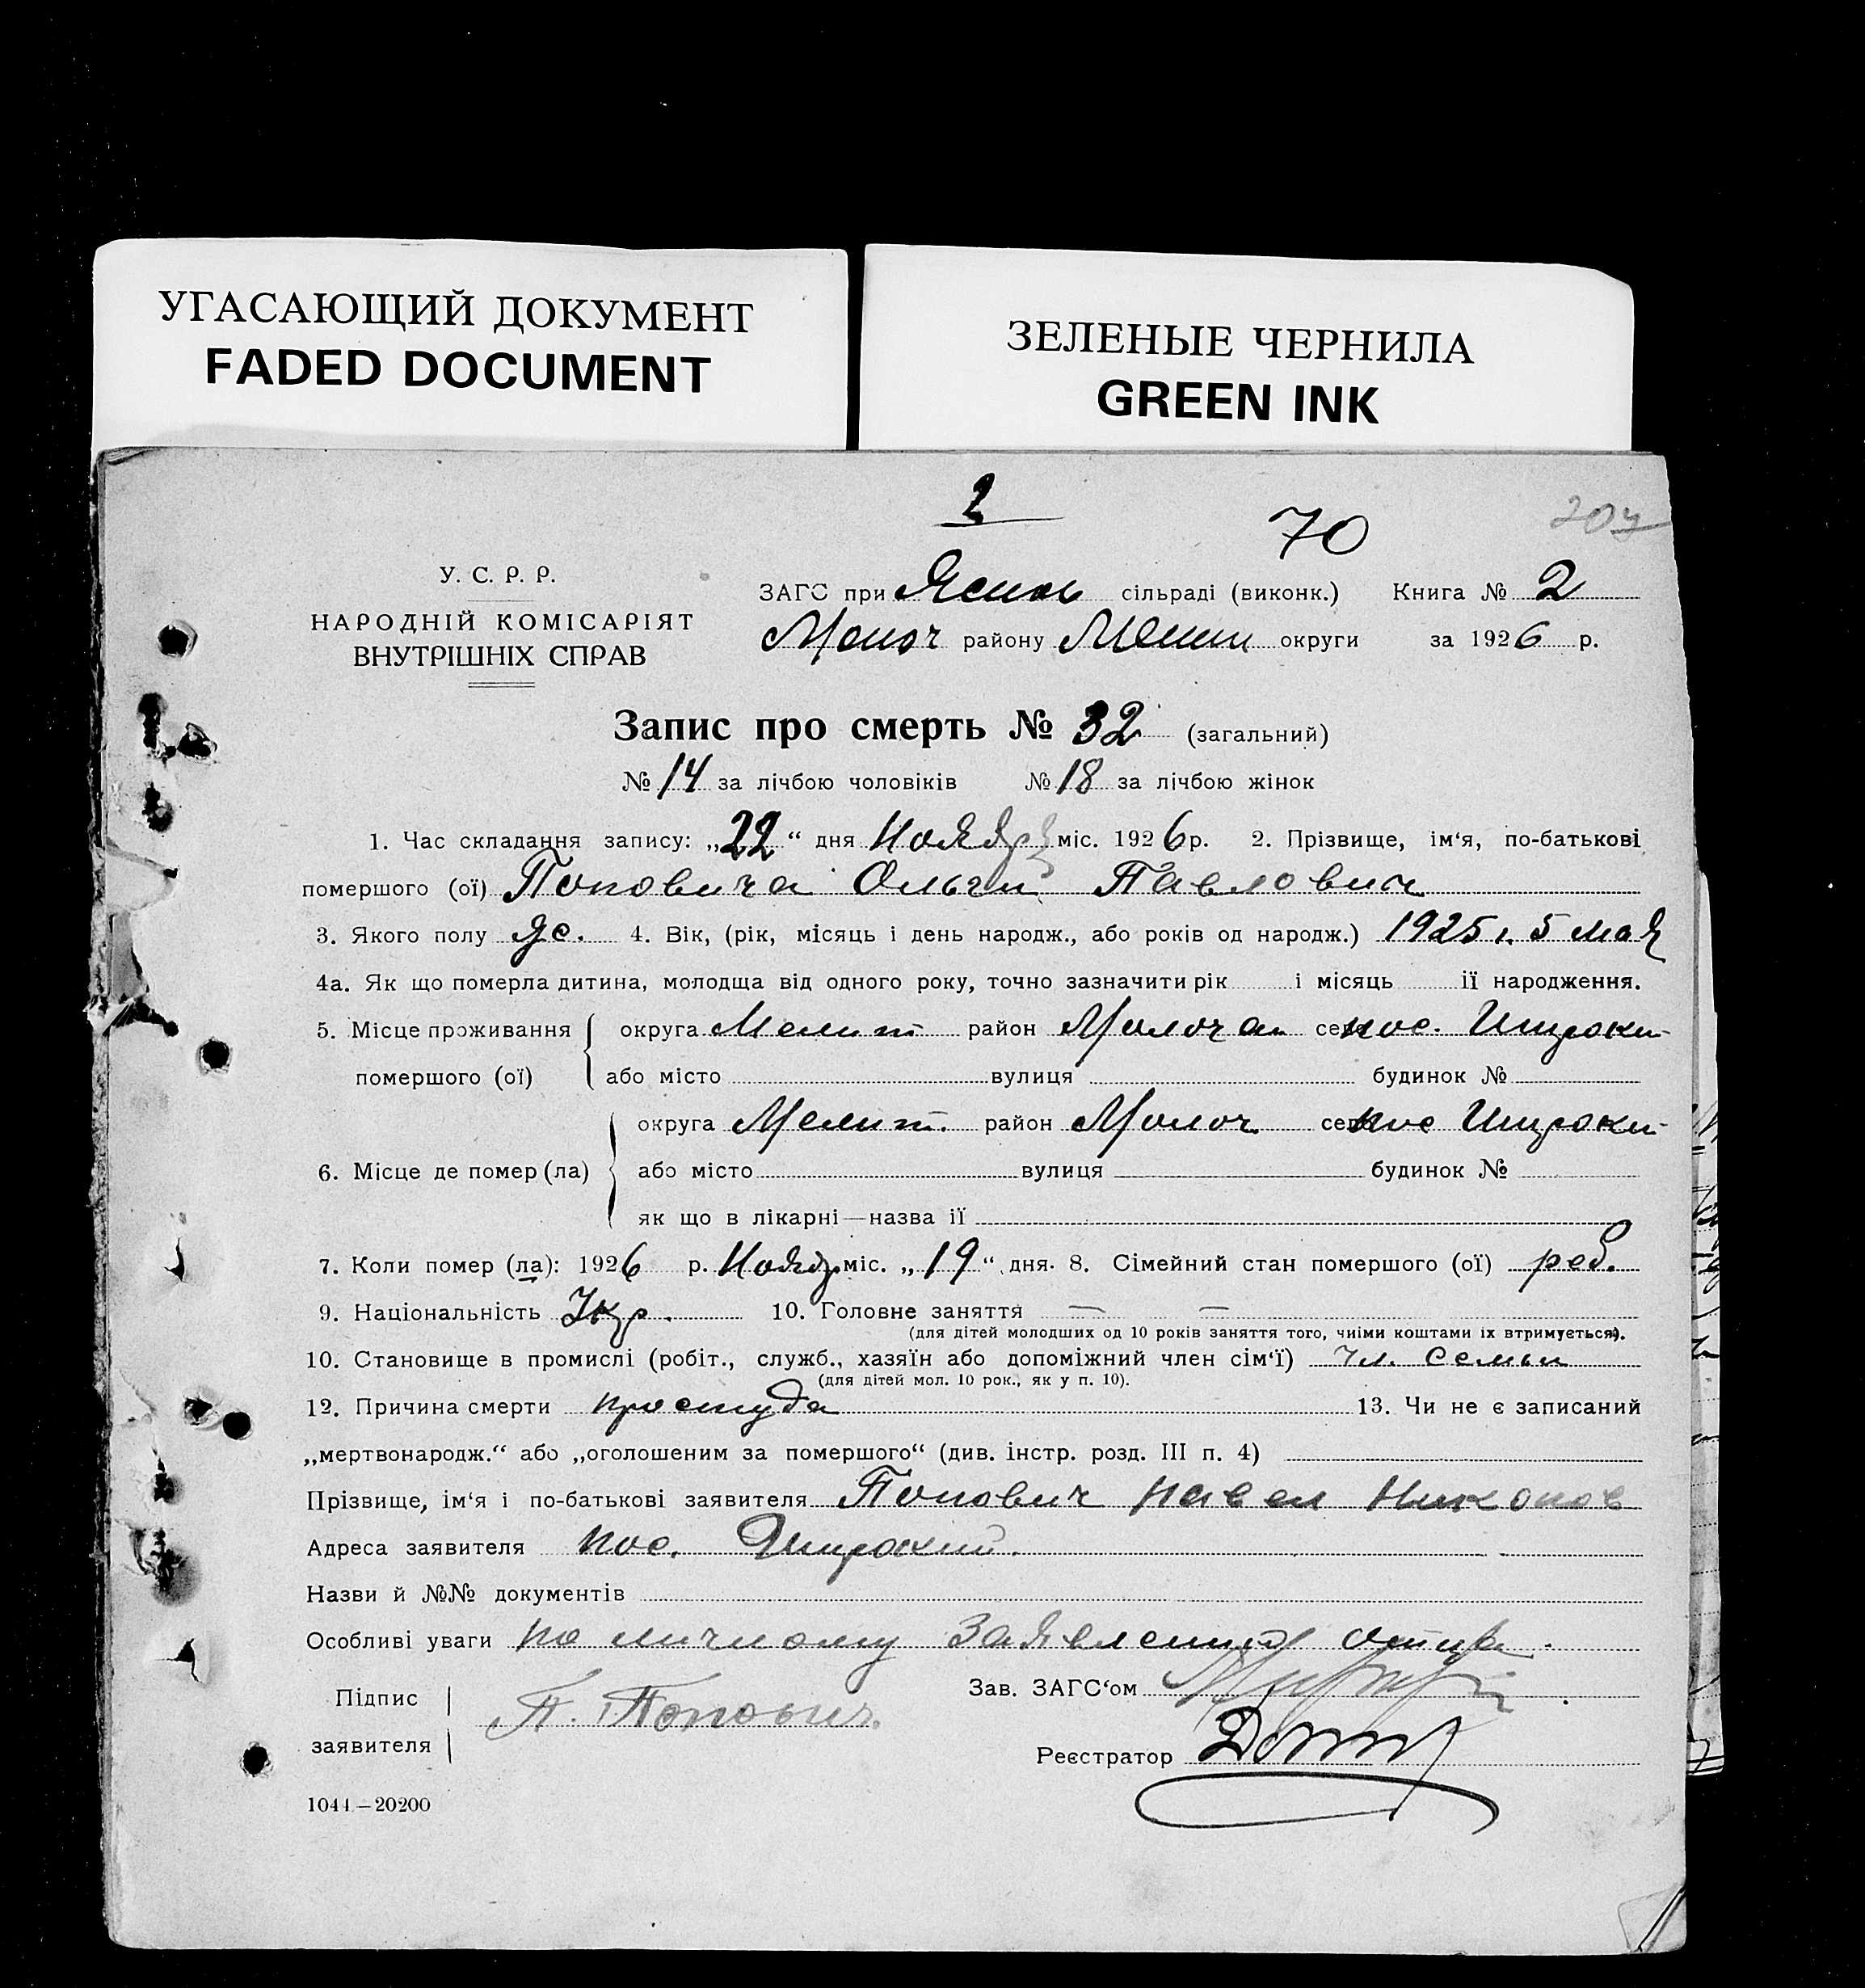 УГАСАЮЩИЙ ДОКУМЕНТ
FADED DOCUMENT
ЗЕЛЕНЫЕ ЧЕРНИЛА
GREEN INK
2
70
У. С. Р. Р.
НАРОДНІЙ КОМІСАРІЯТ
ВНУТРІШНІХ СПРАВ
ЗАГС при сільраді (виконк.) Книга № 2
Молоч району Мелит округи за 1926 р.
Запис про смерть № 32 (загальний)
№ 14 за лічбою чоловіків № 18 за лічбою жінок
1. Час складання запису: „22“ дня Ноября міс. 1926 р. 2. Прізвище, ім‘я, по-батькові
помершого (ої) Поповича Ольги Павлович
3. Якого полу же. 4. Вік, (рік, місяць і день народж., або років од народж.) 1925 г. 5 мая
4а. Як що померла дитина, молодща від одного року, точно зазначити рік і місяць її народження.
5. Місце проживання округа Мелит район Молочан село пос. Широки
помершого (ої) або місто вулиця будинок №
округа Мелит. район Молоч. село пос Широки
6. Місце де помер (ла) або місто вулиця будинок №
як що в лікарні—назва її
7. Коли помер (ла): 1926 р. Ноябр міс. „19“ дня. 8. Сімейний стан помершого (ої) реб.
9. Національність Укр. 10. Головне заняття — —
(для дітей молодших од 10 років заняття того, чиіми коштами їх втримується).
10. Становище в промислі (робіт., служб., хазяїн або допоміжний член сім‘ї) Чл. Семьи
(для дітей мол. 10 рок., як у п. 10).
12. Причина смерти простуда 13. Чи не є записаний
„мертвонародж.“ або „оголошеним за помершого“ (див. інстр. розд. III п. 4)
Прізвище, ім‘я і по-батькові заявителя Попович Павел Никонов
Адреса заявителя пос. Широкий.
Назви й №№ документів
Особливі уваги по личному заявлению отца.
Підпис
заявителя
П. Попович.
Зав. ЗАГС‘ом
Реєстратор
1044—20200